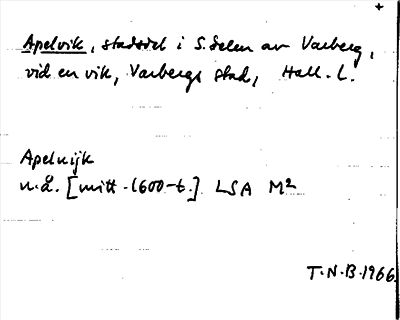 +
Apelvik, stadsdel i S. delen av Varberg,
vid en vik, Varbergs stad, Hall. L.
Apelwijk
u.å. [mitt. 1600-t.] LSA M2
T.N.B. 1966.